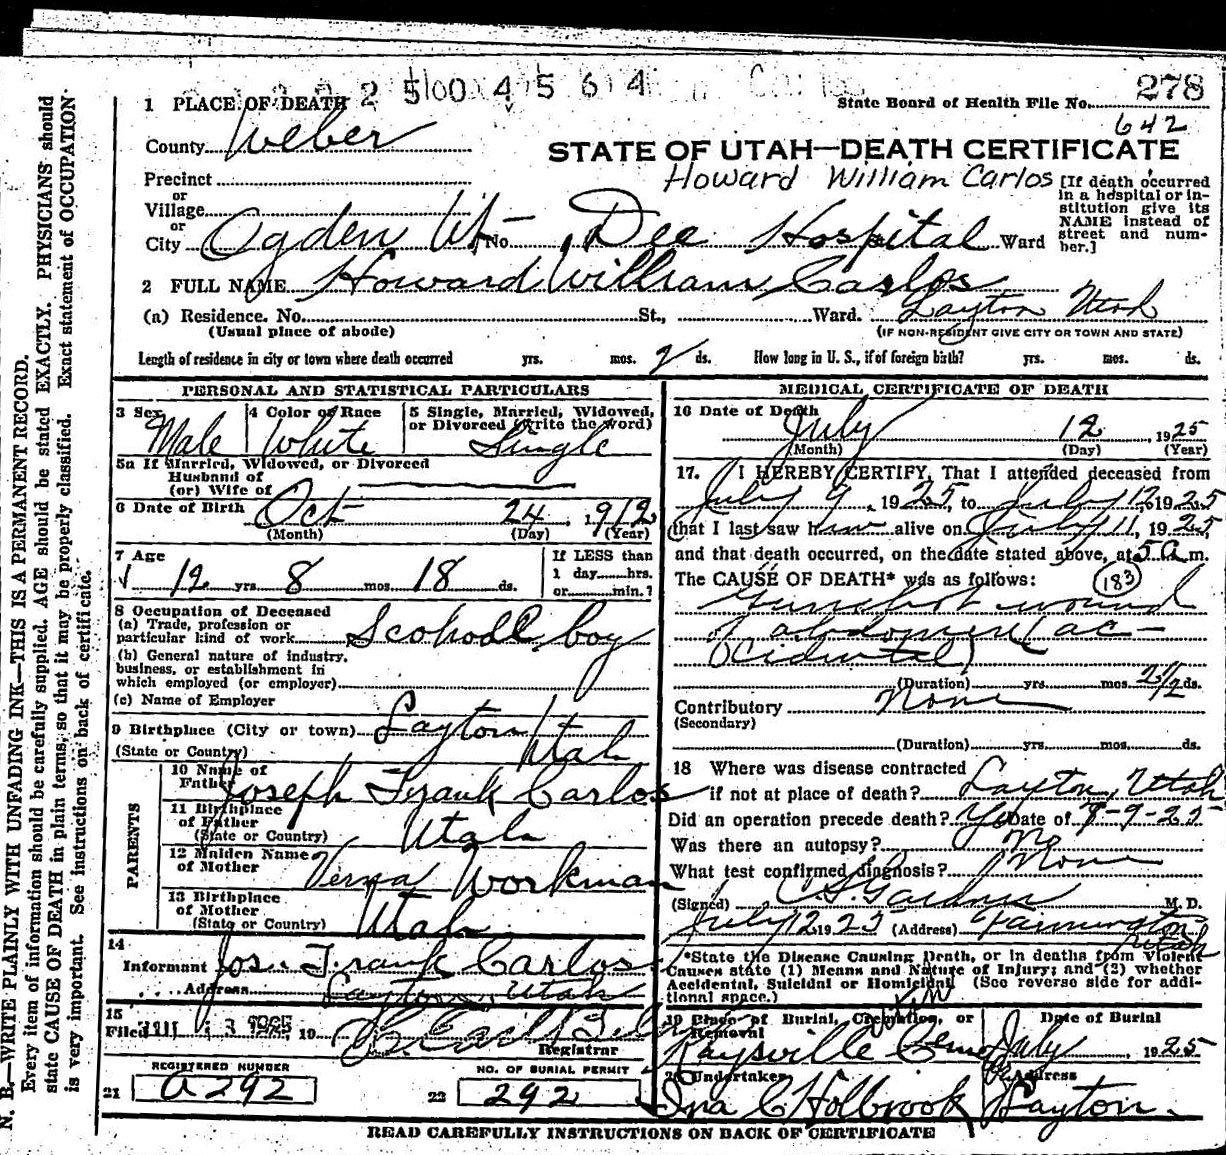 2 5 00 4 5 6 4
278
1 PLACE OF DEATH
State Board of Health File No.
642
County Weber
STATE OF UTAH—DEATH CERTIFICATE
Howard William Carlos
Precinct
or
Village
or
City Ogden Ut No. Dee Hospital Ward
[If death occurred
in a hospital or in-
stitution give its
NAME instead of
street and num-
ber.]
2 FULL NAME Howard William Carlos
(a) Residence. No. St., Ward. Layton Utah
(Usual place of abode)
(IF NON-RESIDENT GIVE CITY OR TOWN AND STATE)
Length of residence in city or town where death occurred yrs. mos. 2 ds. How long in U. S., if of foreign birth? yrs. mos. ds.
PERSONAL AND STATISTICAL PARTICULARS
3 Sex Male
4 Color or Race White
5 Single, Married, Widowed,
or Divorced (write the word)
Single
5a If Married, Widowed, or Divorced
Husband of
(or) Wife of
6 Date of Birth Oct 24, 1912
(Month) (Day) (Year)
7 Age
12 yrs. 8 mos. 18 ds.
If LESS than
1 day hrs.
or min.?
8 Occupation of Deceased
(a) Trade, profession or
particular kind of work School boy
(b) General nature of industry,
business, or establishment in
which employed (or employer)
(c) Name of Employer
9 Birthplace (City or town) Layton
(State or Country) Utah
PARENTS
10 Name of
Father Joseph Frank Carlos
11 Birthplace
of Father
(State or Country) Utah
12 Maiden Name
of Mother Verna Workman
13 Birthplace
of Mother
(State or Country) Utah
14
Informant Jos. Frank Carlos
Address Layton, Utah
15
Filed 19
Registrar
REGISTERED NUMBER
21 a292
NO. OF BURIAL PERMIT
22 292
MEDICAL CERTIFICATE OF DEATH
16 Date of Death
July 12, 1925
(Month) (Day) (Year)
17. I HEREBY CERTIFY, That I attended deceased from
July 9, 1925, to July 12, 1925
that I last saw him alive on July 11, 1925,
and that death occurred, on the date stated above, at 5 a m.
The CAUSE OF DEATH* was as follows:
183
Gunshot wound
of abdomen (ac-
cidental)
(Duration) yrs. mos. 2 1/2 ds.
Contributory None
(Secondary)
(Duration) yrs. mos. ds.
18 Where was disease contracted
if not at place of death? Layton, Utah
Did an operation precede death? Yes Date of 7-9-25
Was there an autopsy? No
What test confirmed diagnosis? None
(Signed) C. S. Gardner M. D.
July 12 1925 (Address) Farmington
Utah
*State the Disease Causing Death, or in deaths from Violent
Causes state (1) Means and Nature of Injury; and (2) whether
Accidental, Suicidal or Homicidal. (See reverse side for addi-
tional space.)
19 Place of Burial, Cremation, or
Removal
Date of Burial
Kaysville Cem July, 1925
20 Undertaker Address
Ira C Holbrook Layton.
READ CAREFULLY INSTRUCTIONS ON BACK OF CERTIFICATE
N. B.—WRITE PLAINLY WITH UNFADING INK—THIS IS A PERMANENT RECORD.
Every item of information should be carefully supplied. AGE should be stated EXACTLY. PHYSICIANS should
state CAUSE OF DEATH in plain terms, so that it may be properly classified. Exact statement of OCCUPATION
is very important. See instructions on back of certificate.